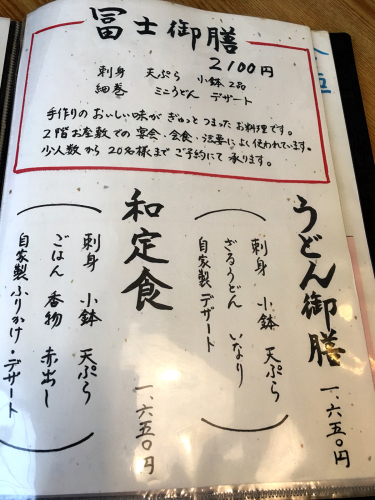 冨士御膳
2100円
刺身 天ぷら 小鉢2品
細巻 ミニうどん デザート
手作りの おいしい味が ぎゅっと つまった お料理です。
2階お座敷での 宴会・会食・法要に よく使われています。
少人数から 20名様まで ご予約にて 承ります。
うどん御膳
一、六五〇円
刺身 小鉢 天ぷら
ざるうどん いなり
自家製デザート
和定食
一、六五〇円
刺身 小鉢 天ぷら
ごはん 香物 赤出し
自家製ふりかけ・デザート